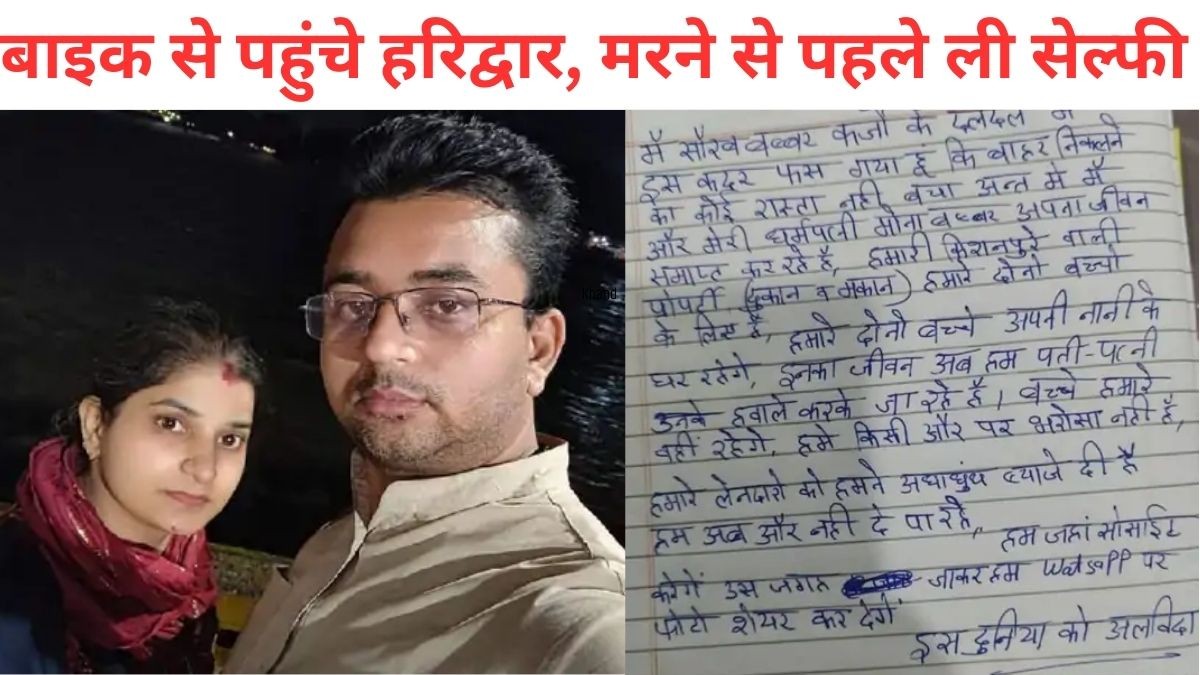 बाइक से पहुंचे हरिद्वार, मरने से पहले ली सेल्फी
khand
मैं सौरव बब्बर कर्जो के दलदल में
इस कदर फस गया हूं कि बाहर निकलने
का कोई रास्ता नही बचा अन्त मे मैं
और मेरी धर्मपत्नी मोना बब्बर अपना जीवन
समाप्त कर रहे है, हमारी किशनपुरे वाली
प्रोपर्टी (दुकान व मकान) हमारे दोनो बच्चो
के लिए है, हमारे दोनो बच्चे अपनी नानी के
घर रहेगे, इनका जीवन अब हम पती-पत्नी
उनके हवाले करके जा रहे है। बच्चे हमारे
वहीं रहेगे, हमे किसी और पर भरोसा नही है,
हमारे लेनदारो को हमने अंधाधुंध ब्याजे दी है
हम अब और नही दे पा रहे, हम जहां सोसाईट
करेगें उस जगह जाकर हम Watsapp पर
फोटो शेयर कर देगें
इस दुनिया को अलविदा